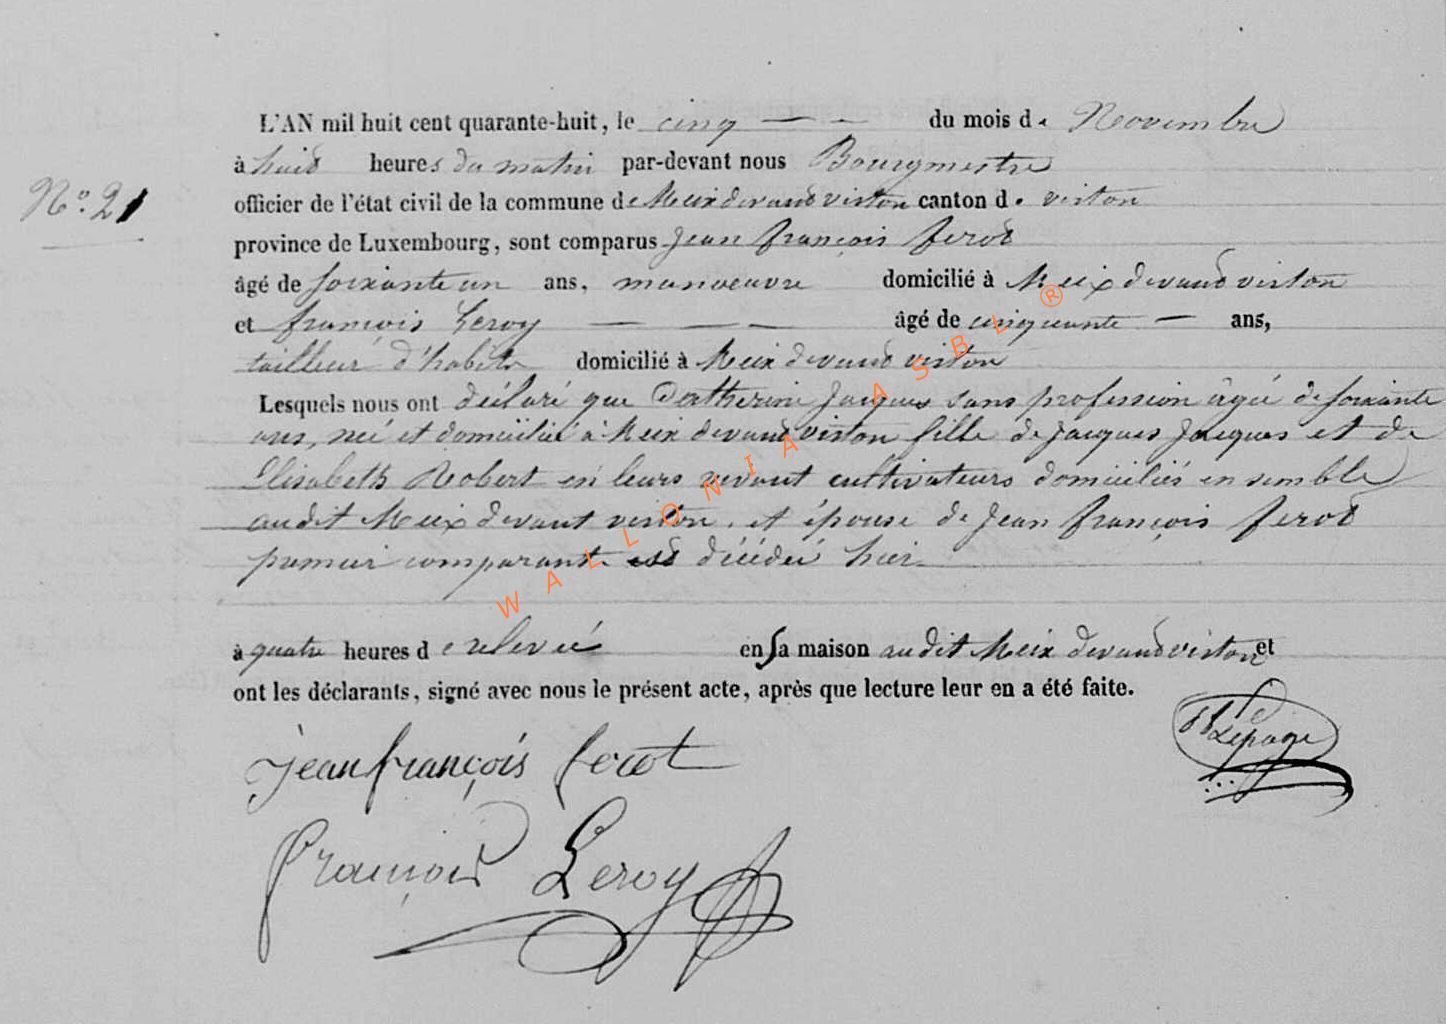 L'AN mil huit cent quarante-huit, le cinq — - du mois de Novembre
à huit heures du matin par-devant nous Bourgmestre
N.° 21
officier de l'état civil de la commune de Meix devant virton canton de virton
province de Luxembourg, sont comparus Jean françois ferot
âgé de soixante un ans, manoeuvre domicilié à Meix devant virton
et françois Leroy — — — âgé de cinquante — ans,
tailleur d'habits domicilié à Meix devant virton
Lesquels nous ont déclaré que Catherine Jacques sans profession âgée de soixante
ans, née et domiciliée à Meix devant virton fille de Jacques Jacques et de
Elisabeth Robert en leurs vivant cultivateurs domiciliés ensemble
audit Meix devant virton, et épouse de Jean françois ferot
premier comparant est décédée hier
à quatre heures de relevée en sa maison audit Meix devant virton et
ont les déclarants, signé avec nous le présent acte, après que lecture leur en a été faite.
Lepage
Jean françois ferot
françois Leroy
WALLONIA ASBL ®